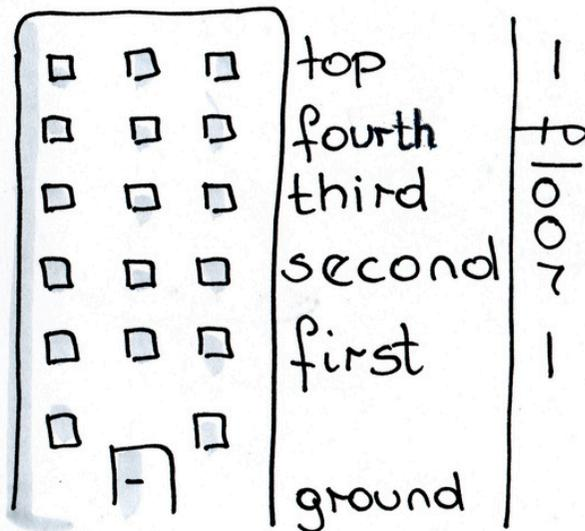 top
fourth
third
second
first
ground
- floor -